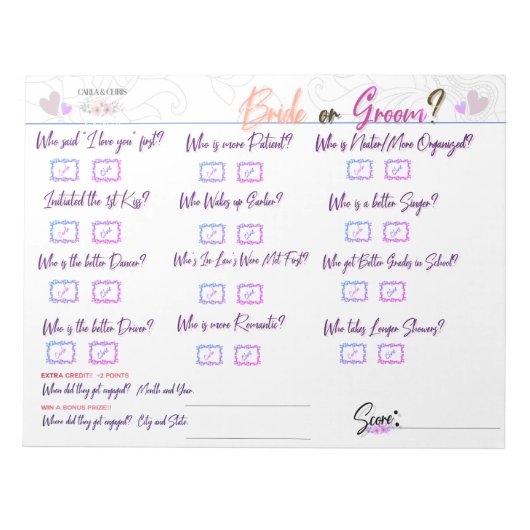 CARLA & CHRIS
Bride or Groom?
Who said "I love you" first?
Who is more Patient?
Who is Neater/More Organized?
Initiated the 1st Kiss?
Who Wakes up Earlier?
Who is a better Singer?
Who is the better Dancer?
Who's In-Law's Were Met First?
Who get Better Grades in School?
Who is the better Driver?
Who is more Romantic?
Who takes Longer Showers?
EXTRA CREDIT!! +2 POINTS
When did they get engaged? Month and Year.
WIN A BONUS PRIZE!!
Where did they get engaged? City and State.
Score: